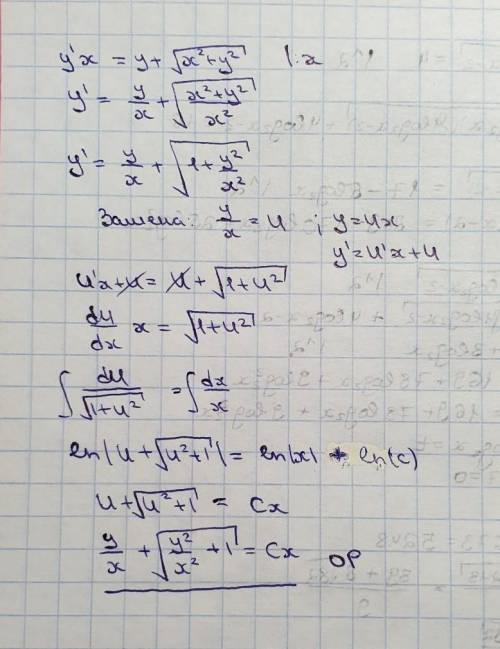 y'x = y + √(x²+y²) | :x
y' = y/x + √((x²+y²)/x²)
y' = y/x + √(1 + y²/x²)
Замена: y/x = u ; y = ux
y' = u'x + u
u'x + u = u + √(1+u²)
du/dx x = √(1+u²)
∫ du/√(1+u²) = ∫ dx/x
ln|u + √(u²+1)| = ln|x| + ln(c)
u + √(u²+1) = Cx
y/x + √(y²/x² + 1) = Cx ОР